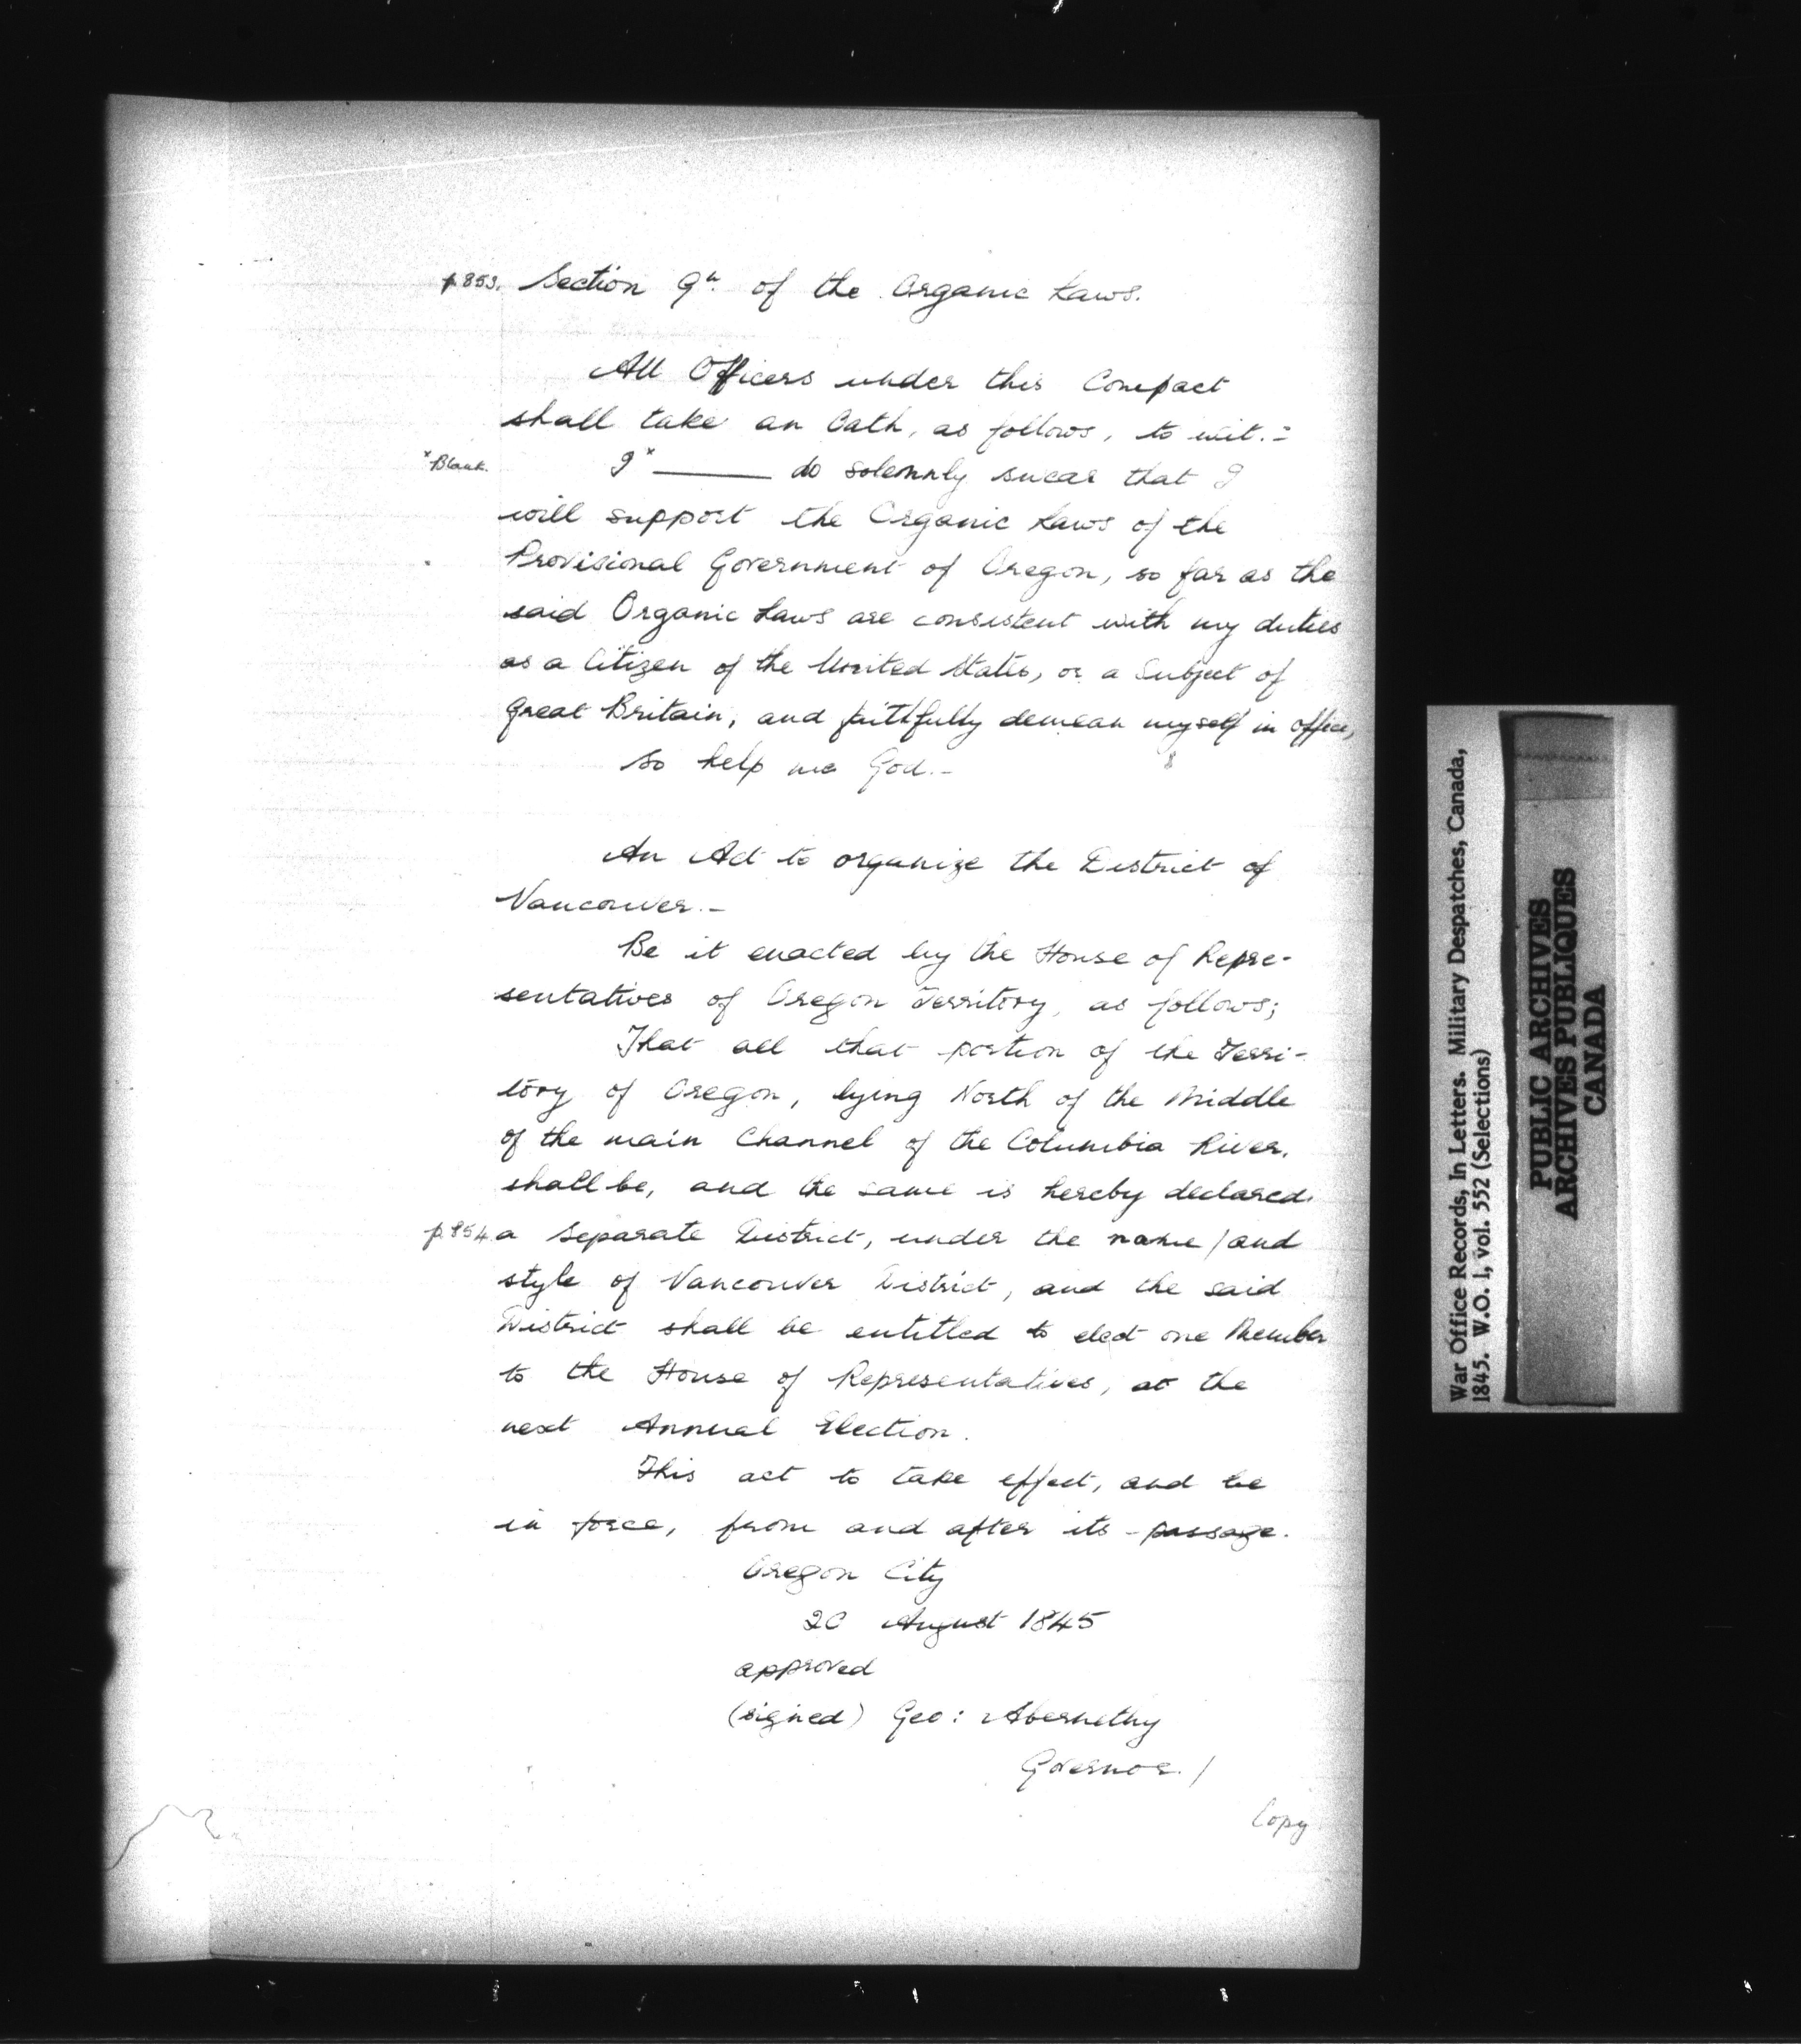 p.853. Section 9th of the Organic Laws.
All Officers under this Compact
shall take an Oath, as follows, to wit.:-
*Blank. I* ——— do solemnly swear that I
will support the Organic Laws of the
Provisional Government of Oregon, so far as the
said Organic Laws are consistent with my duties
as a Citizen of the United States, or a Subject of
Great Britain, and faithfully demean myself in office,
So help me God.-
An Act to organize the District of
Vancouver.-
Be it enacted by the House of Repre-
sentatives of Oregon Territory, as follows;
That all that portion of the Terri-
tory of Oregon, lying North of the Middle
of the main Channel of the Columbia River.
shall be, and the same is hereby declared.
p.854. a separate District, under the name/and
style of Vancouver District, and the said
District shall be entitled to elect one Member
to the House of Representatives, at the
next Annual Election.
This act to take effect, and be
in force, from and after its passage.
Oregon City
20 August 1845
approved
(signed) Geo: Abernethy
Governor./
Copy
War Office Records, In Letters. Military Despatches, Canada,
1845. W.O. 1, vol. 552 (Selections)
PUBLIC ARCHIVES
ARCHIVES PUBLIQUES
CANADA